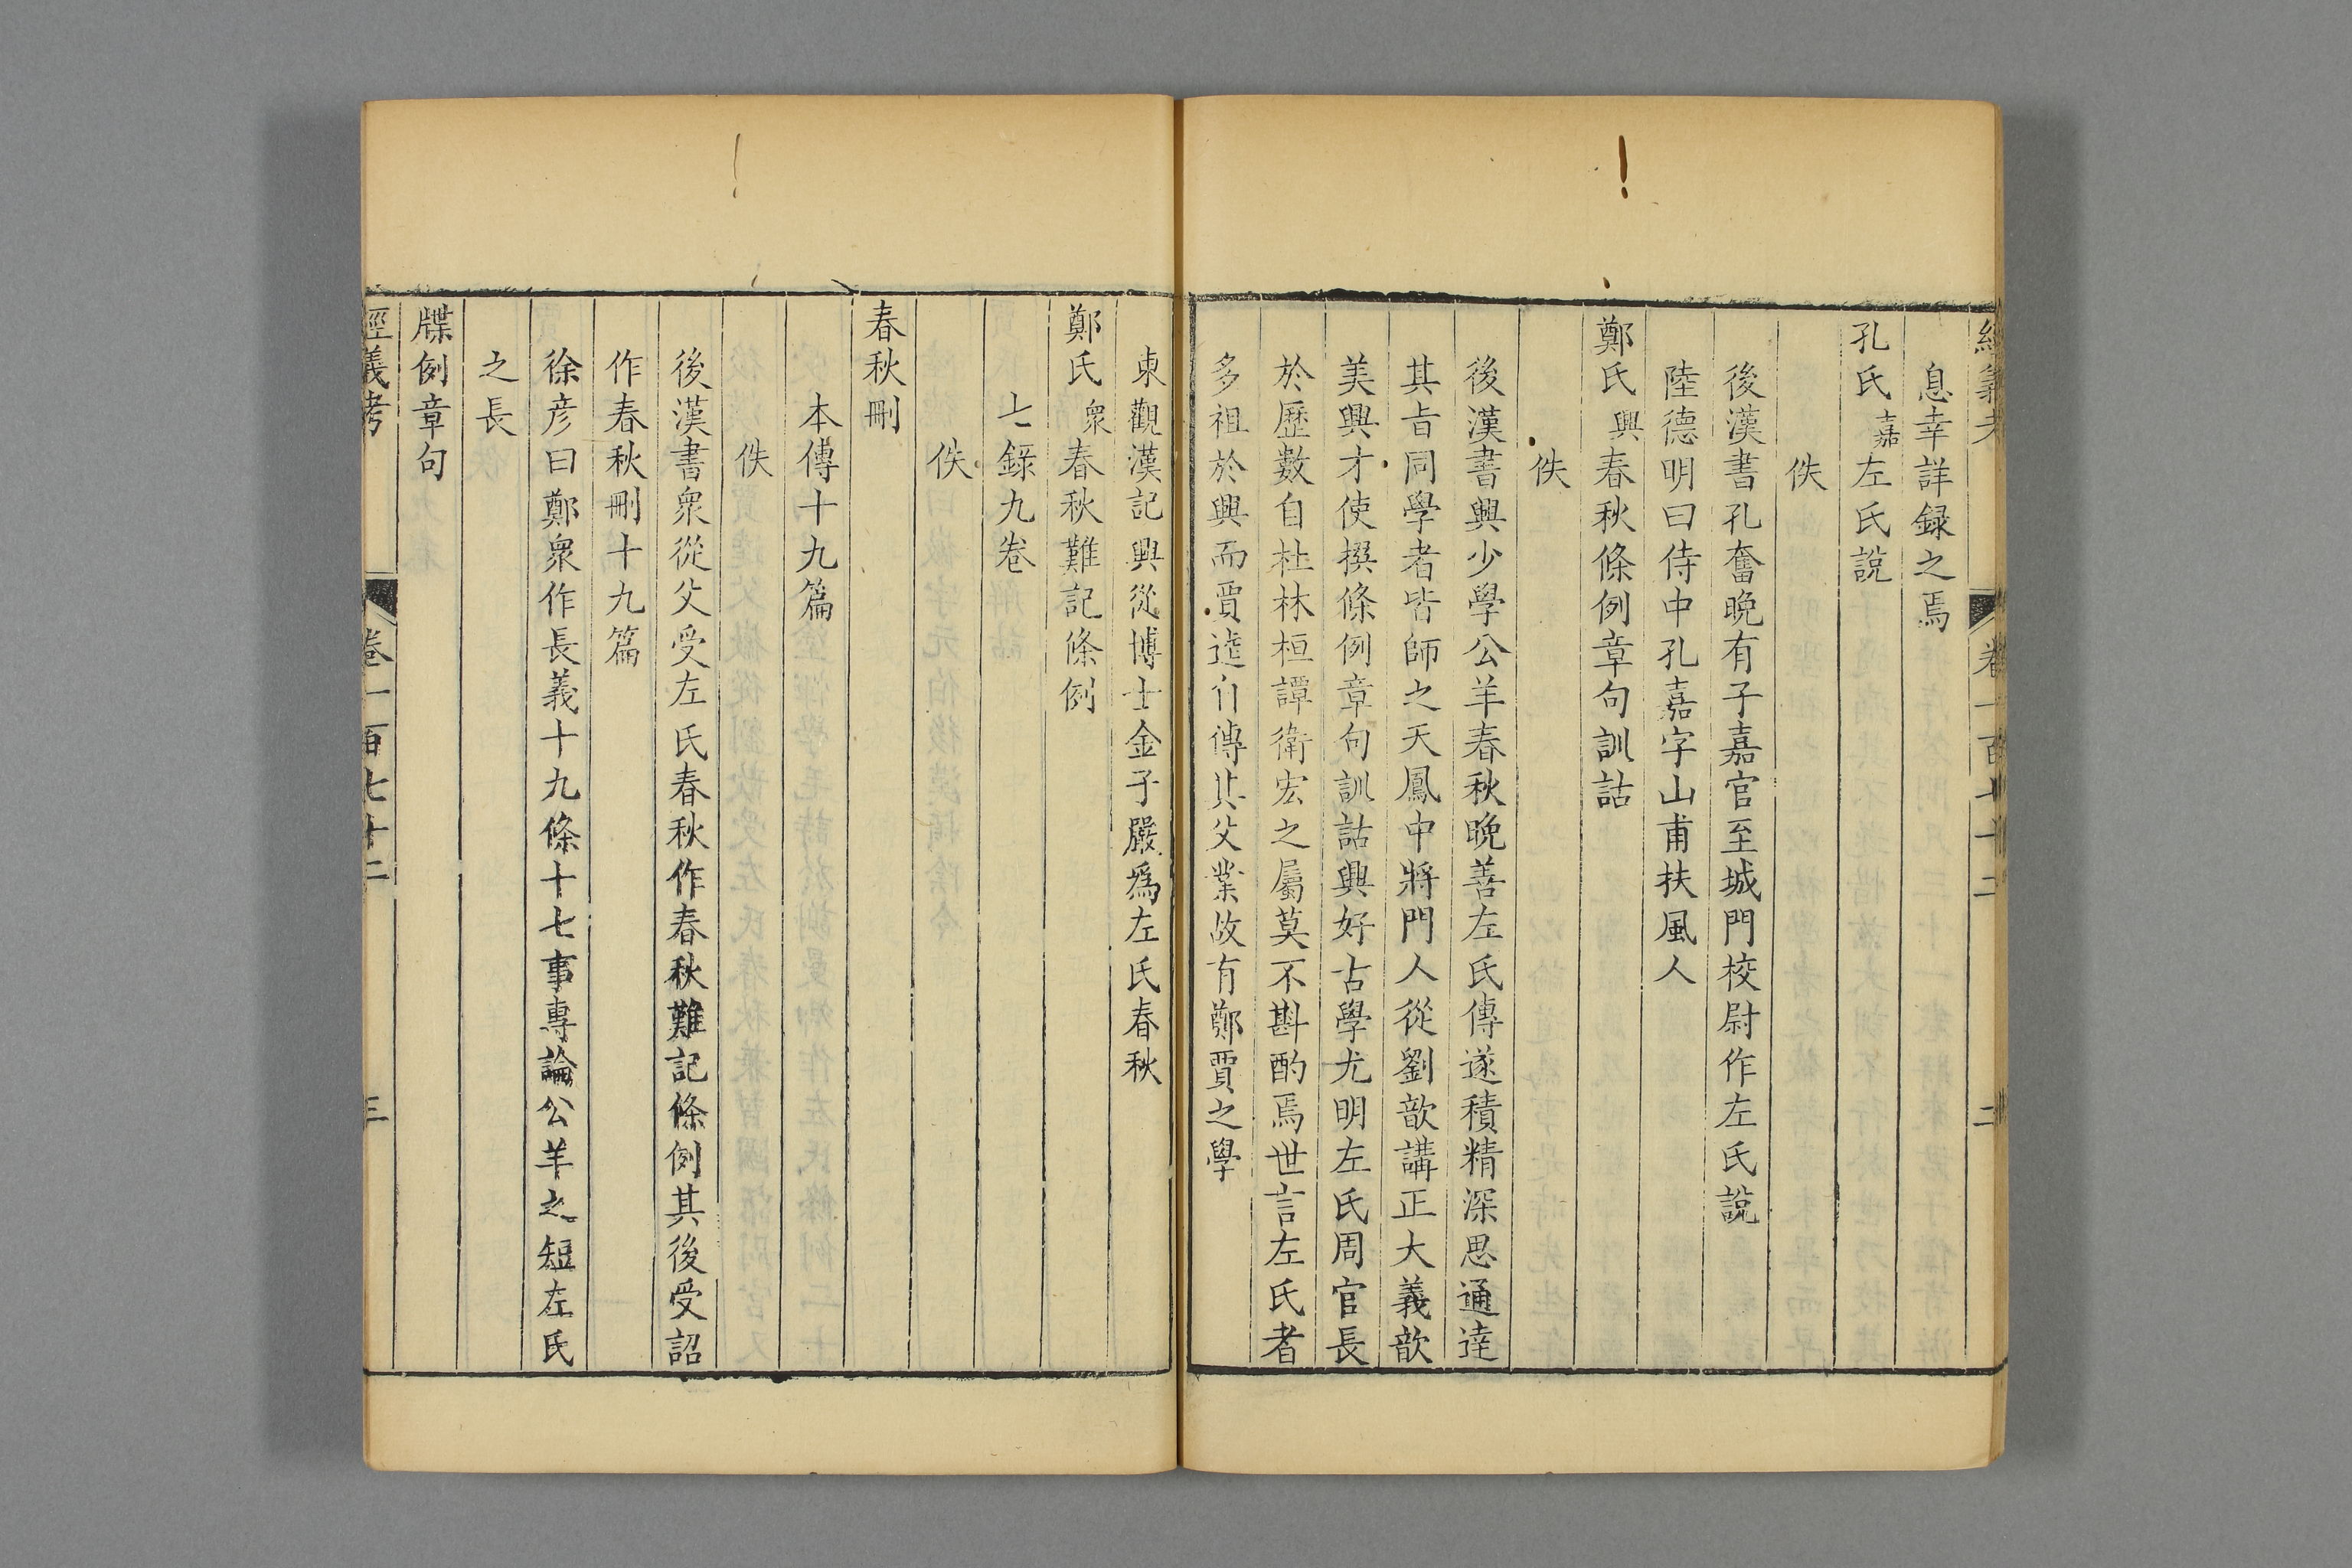 經義考 卷一百七十二 二
息幸詳録之焉
孔氏嘉左氏說
佚
後漢書孔奮晚有子嘉官至城門校尉作左氏說
陸德明曰侍中孔嘉字山甫扶風人
鄭氏興春秋條例章句訓詁
佚
後漢書興少學公羊春秋晚善左氏傳遂積精深思通逹
其旨同學者皆師之天鳳中將門人從劉歆講正大義歆
美興才使撰條例章句訓詁興好古學尤明左氏周官長
於歷數自杜林桓譚衛宏之屬莫不斟酌焉世言左氏者
多祖於興而賈逵自傳其父業故有鄭賈之學
東觀漢記興從博士金子嚴爲左氏春秋
鄭氏衆春秋難記條例
七錄九卷
佚
春秋刪
本傳十九篇
佚
後漢書衆從父受左氏春秋作春秋難記條例其後受詔
作春秋刪十九篇
徐彦曰鄭衆作長義十九條十七事專論公羊之短左氏
之長
牒例章句
經義考 卷一百七十二 三